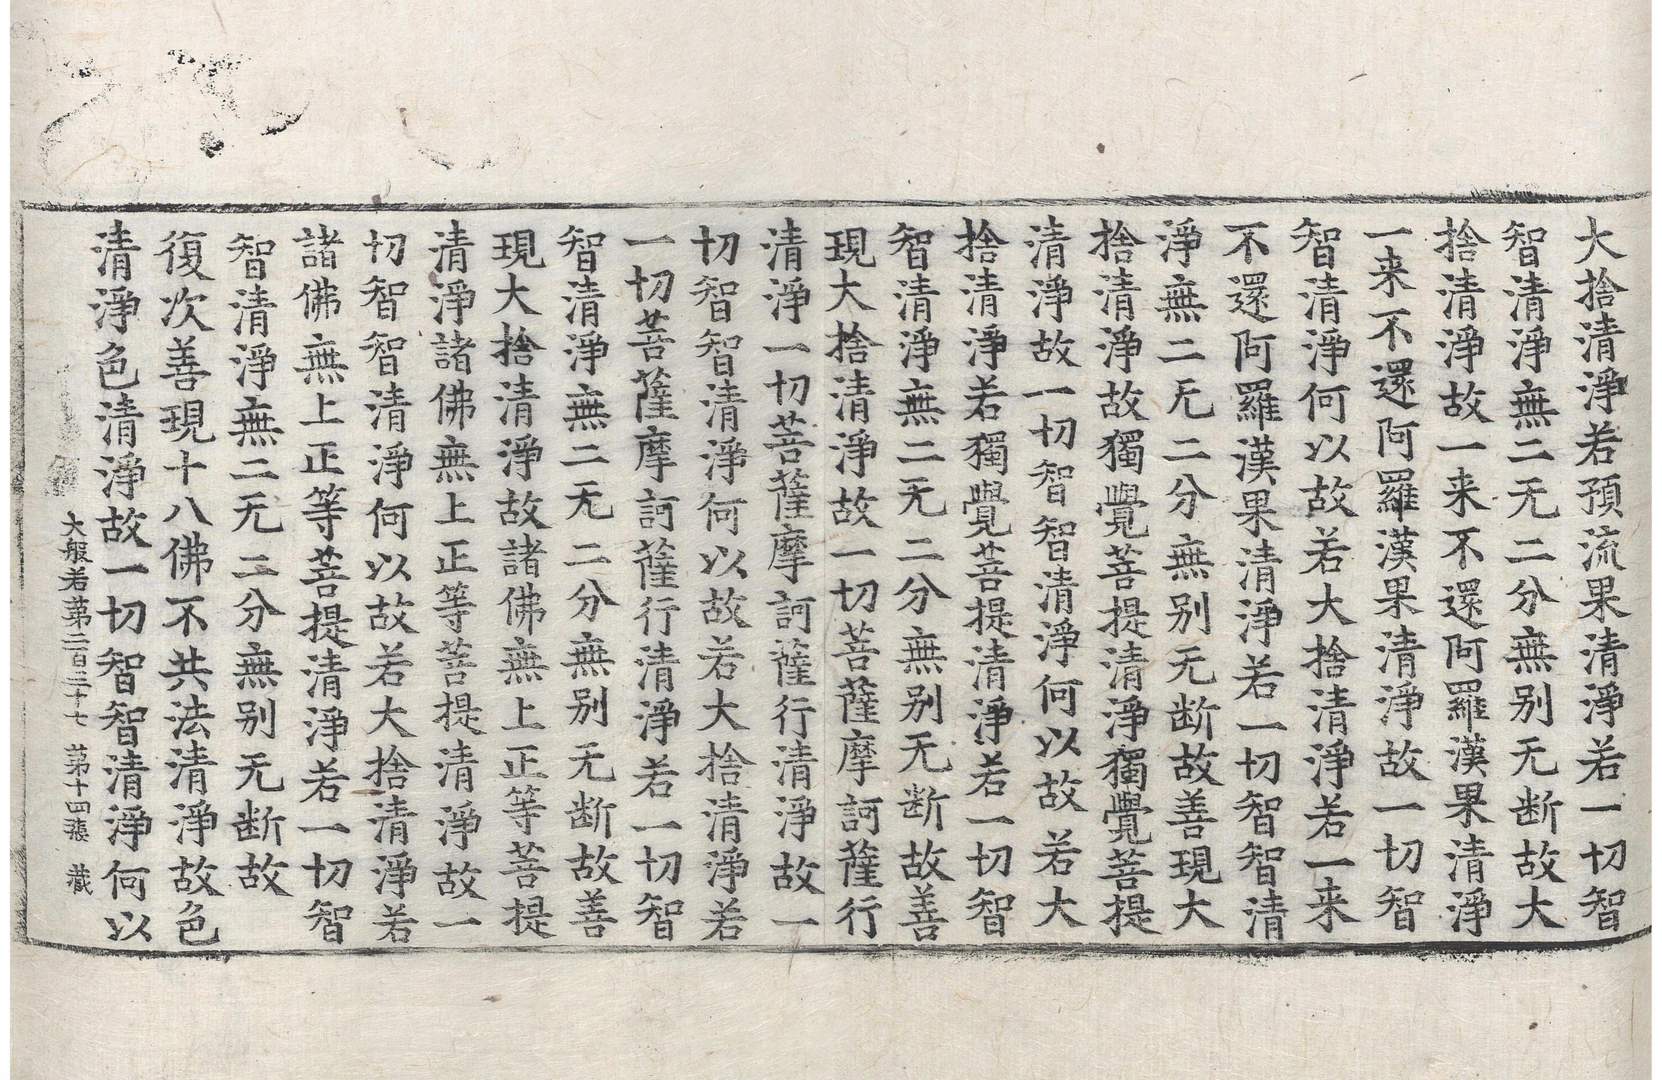 大捨清淨若預流果清淨若一切智
智清淨無二无二分無别无断故大
捨清淨故一来不還阿羅漢果清淨
一来不還阿羅漢果清淨故一切智
智清淨何以故若大捨清淨若一来
不還阿羅漢果清淨若一切智智清
淨無二无二分無别无断故善現大
捨清淨故獨覺菩提清淨獨覺菩提
清淨故一切智智清淨何以故若大
捨清淨若獨覺菩提清淨若一切智
智清淨無二无二分無别无断故善
現大捨清淨故一切菩薩摩訶薩行
清淨一切菩薩摩訶薩行清淨故一
切智智清淨何以故若大捨清淨若
一切菩薩摩訶薩行清淨若一切智
智清淨無二无二分無别无断故善
現大捨清淨故諸佛無上正等菩提
清淨諸佛無上正等菩提清淨故一
切智智清淨何以故若大捨清淨若
諸佛無上正等菩提清淨若一切智
智清淨無二无二分無别无断故
復次善現十八佛不共法清淨故色
清淨色清淨故一切智智清淨何以
大般若第二百三十七 第十四張 藏